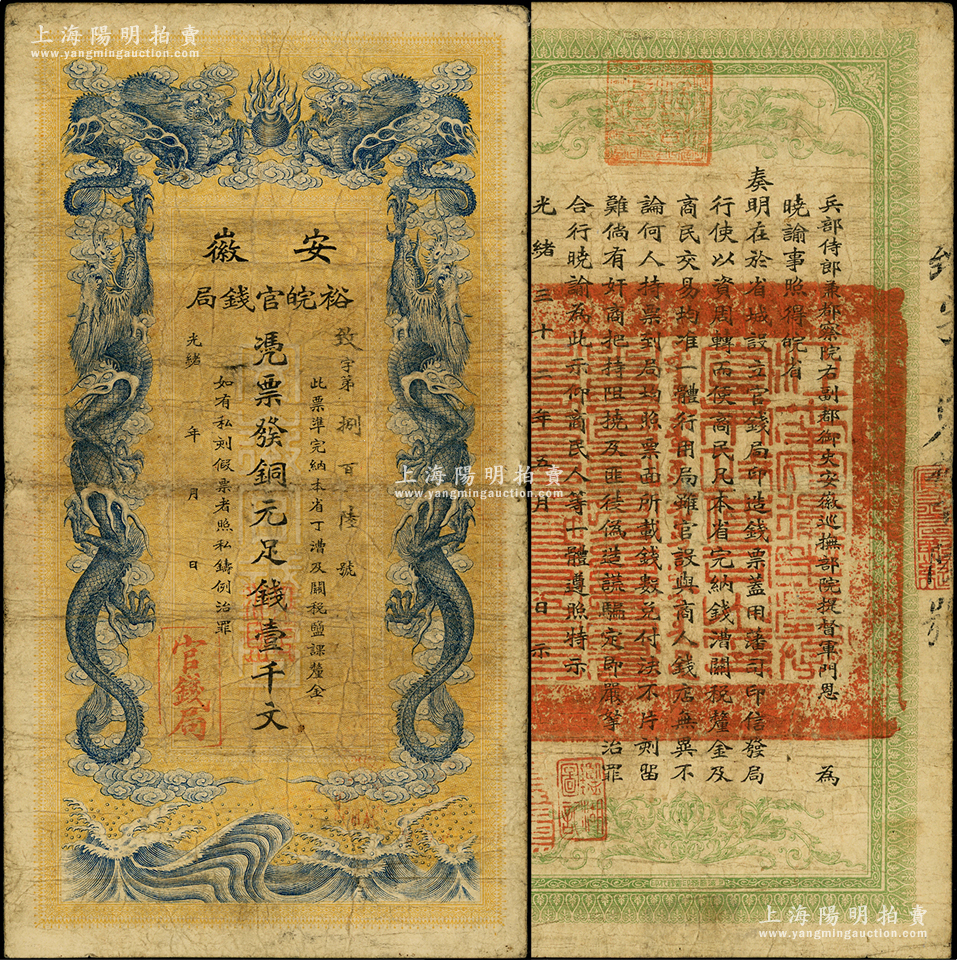 上海陽明拍賣
www.yangmingauction.com
安徽
裕皖官錢局
致字第捌百陸號
此票準完納本省丁漕及關稅鹽課釐金
憑票發銅元足錢壹千文
如有私刻假票者照私鑄例治罪
光緒 年 月 日
官錢局
兵部侍郎兼都察院右副都御史安徽巡撫部院提督軍門恩 為
曉諭事照得皖省
奏明在於省城設立官錢局印造錢票蓋用藩司印信發局
行使以資周轉而便商民凡本省完納錢漕關稅釐金及
商民交易均准一體行用局雖官設與商人錢店無異不
論何人持票到局均照票面所載錢數兌付決不片刻留
難倘有奸商把持阻撓及匪徒偽造誆騙定即嚴拏治罪
合行曉諭為此示仰商民人等一體遵照特示
光緒三十二年五月 日示
上海陽明拍賣
www.yangmingauction.com
上海陽明拍賣
www.yangmingauction.com